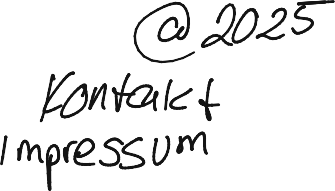 @ 2025
Kontakt
Impressum